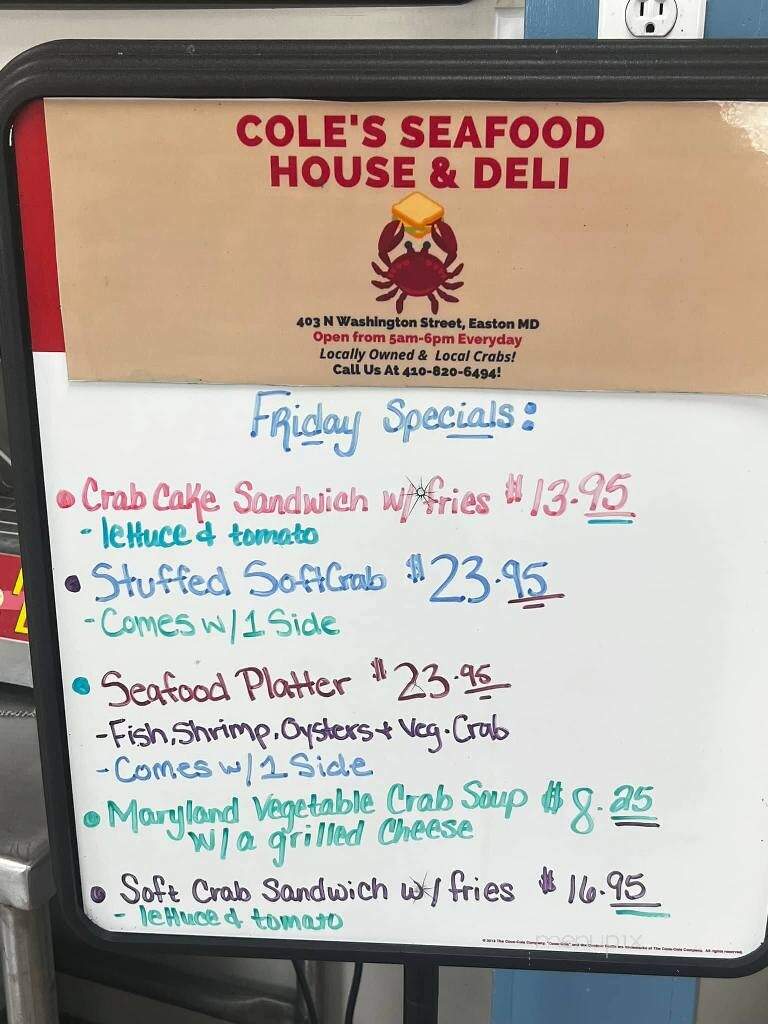 COLE'S SEAFOOD
HOUSE & DELI
403 N Washington Street, Easton MD
Open from 5am-6pm Everyday
Locally Owned & Local Crabs!
Call Us At 410-820-6494!
Friday Specials:
• Crab Cake Sandwich w/ fries $13.95
- lettuce & tomato
• Stuffed Soft Crab $23.95
- Comes w/ 1 Side
• Seafood Platter $23.95
- Fish, Shrimp, Oysters + Veg. Crab
- Comes w/ 1 Side
• Maryland Vegetable Crab Soup $8.25
w/ a grilled Cheese
• Soft Crab Sandwich w/ fries $16.95
- lettuce & tomato
menupix